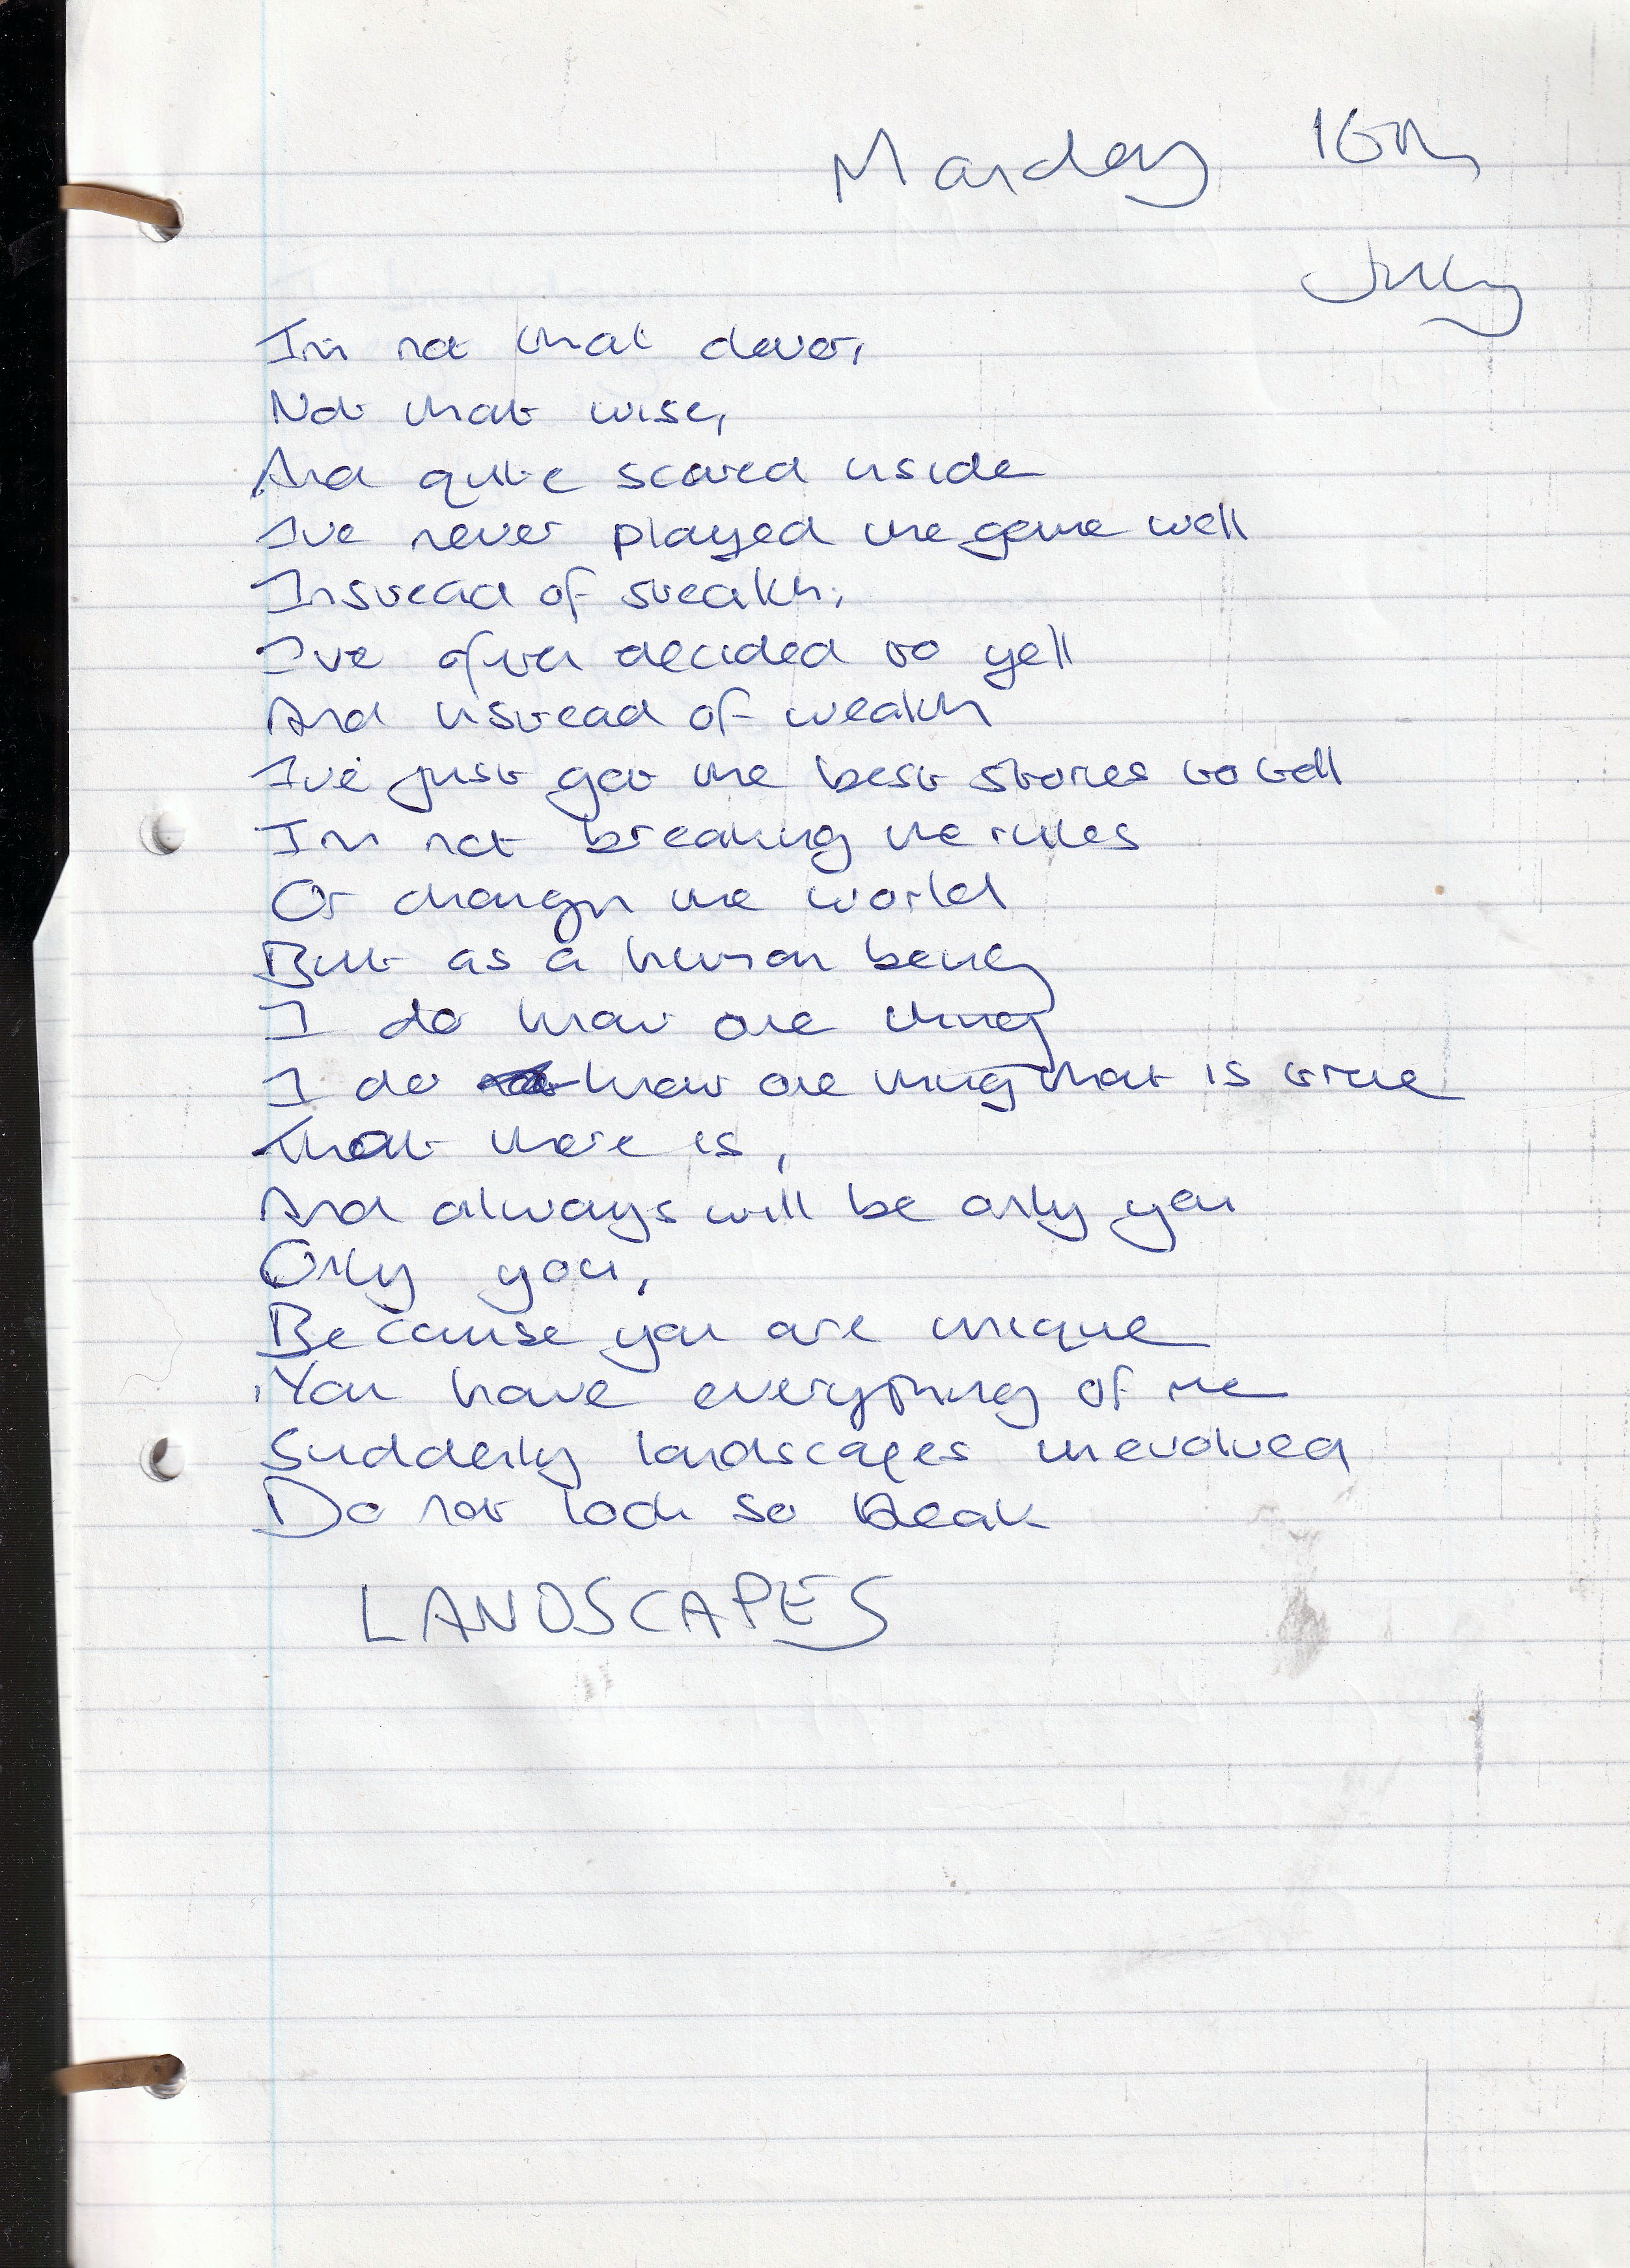 Monday 16th
July
I'm not that clever,
Not that wise,
And quite scared inside
I've never played the game well
Instead of stealth,
I've often decided to yell
And instead of wealth
I've just got the best stories to tell
I'm not breaking the rules
Or changin the world
But as a human being
I do know one thing
I do know one thing that is true
That there is,
And always will be only you
Only you,
Because you are unique
You have everything of me
Suddenly landscapes unevolved
Do not look so bleak
LANDSCAPES